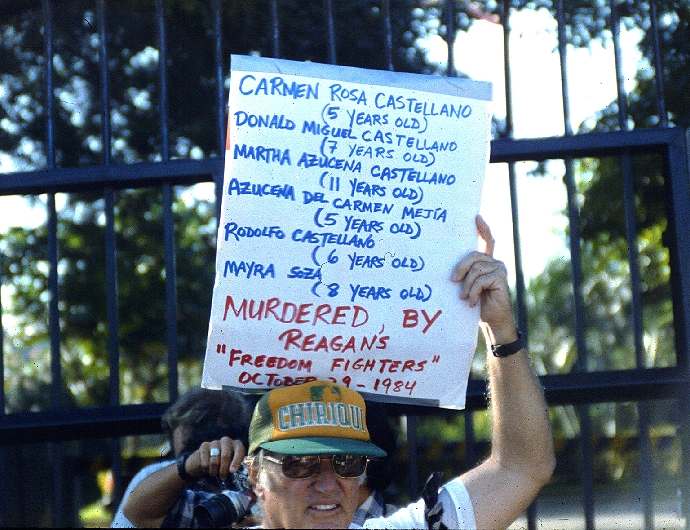 CARMEN ROSA CASTELLANO
(5 YEARS OLD)
DONALD MIGUEL CASTELLANO
(7 YEARS OLD)
MARTHA AZUCENA CASTELLANO
(11 YEARS OLD)
AZUCENA DEL CARMEN MEJÍA
(5 YEARS OLD)
RODOLFO CASTELLANO
(6 YEARS OLD)
MAYRA SOZA
(8 YEARS OLD)
MURDERED, BY
REAGAN'S
"FREEDOM FIGHTERS"
OCTOBER 29-1984
CHIRIQUI